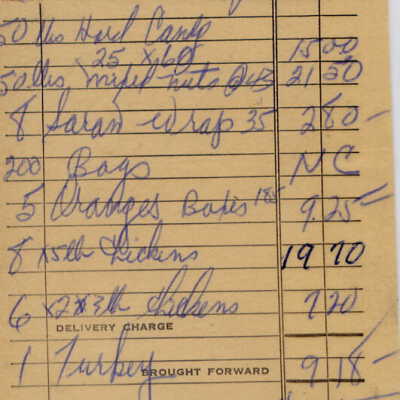 50 lbs Hard Candy 15 00
25 x 60
50 lbs mixed nuts @ 43 21 50
8 Saran Wrap 35 2 80 -
200 Bags NC
5 Oranges Boxes 185 9.25 -
8 x 5 lb Chickens 19 70
6 x 2 x 3 lb Chickens 7 20
DELIVERY CHARGE
1 Turkey 9 18 -
BROUGHT FORWARD